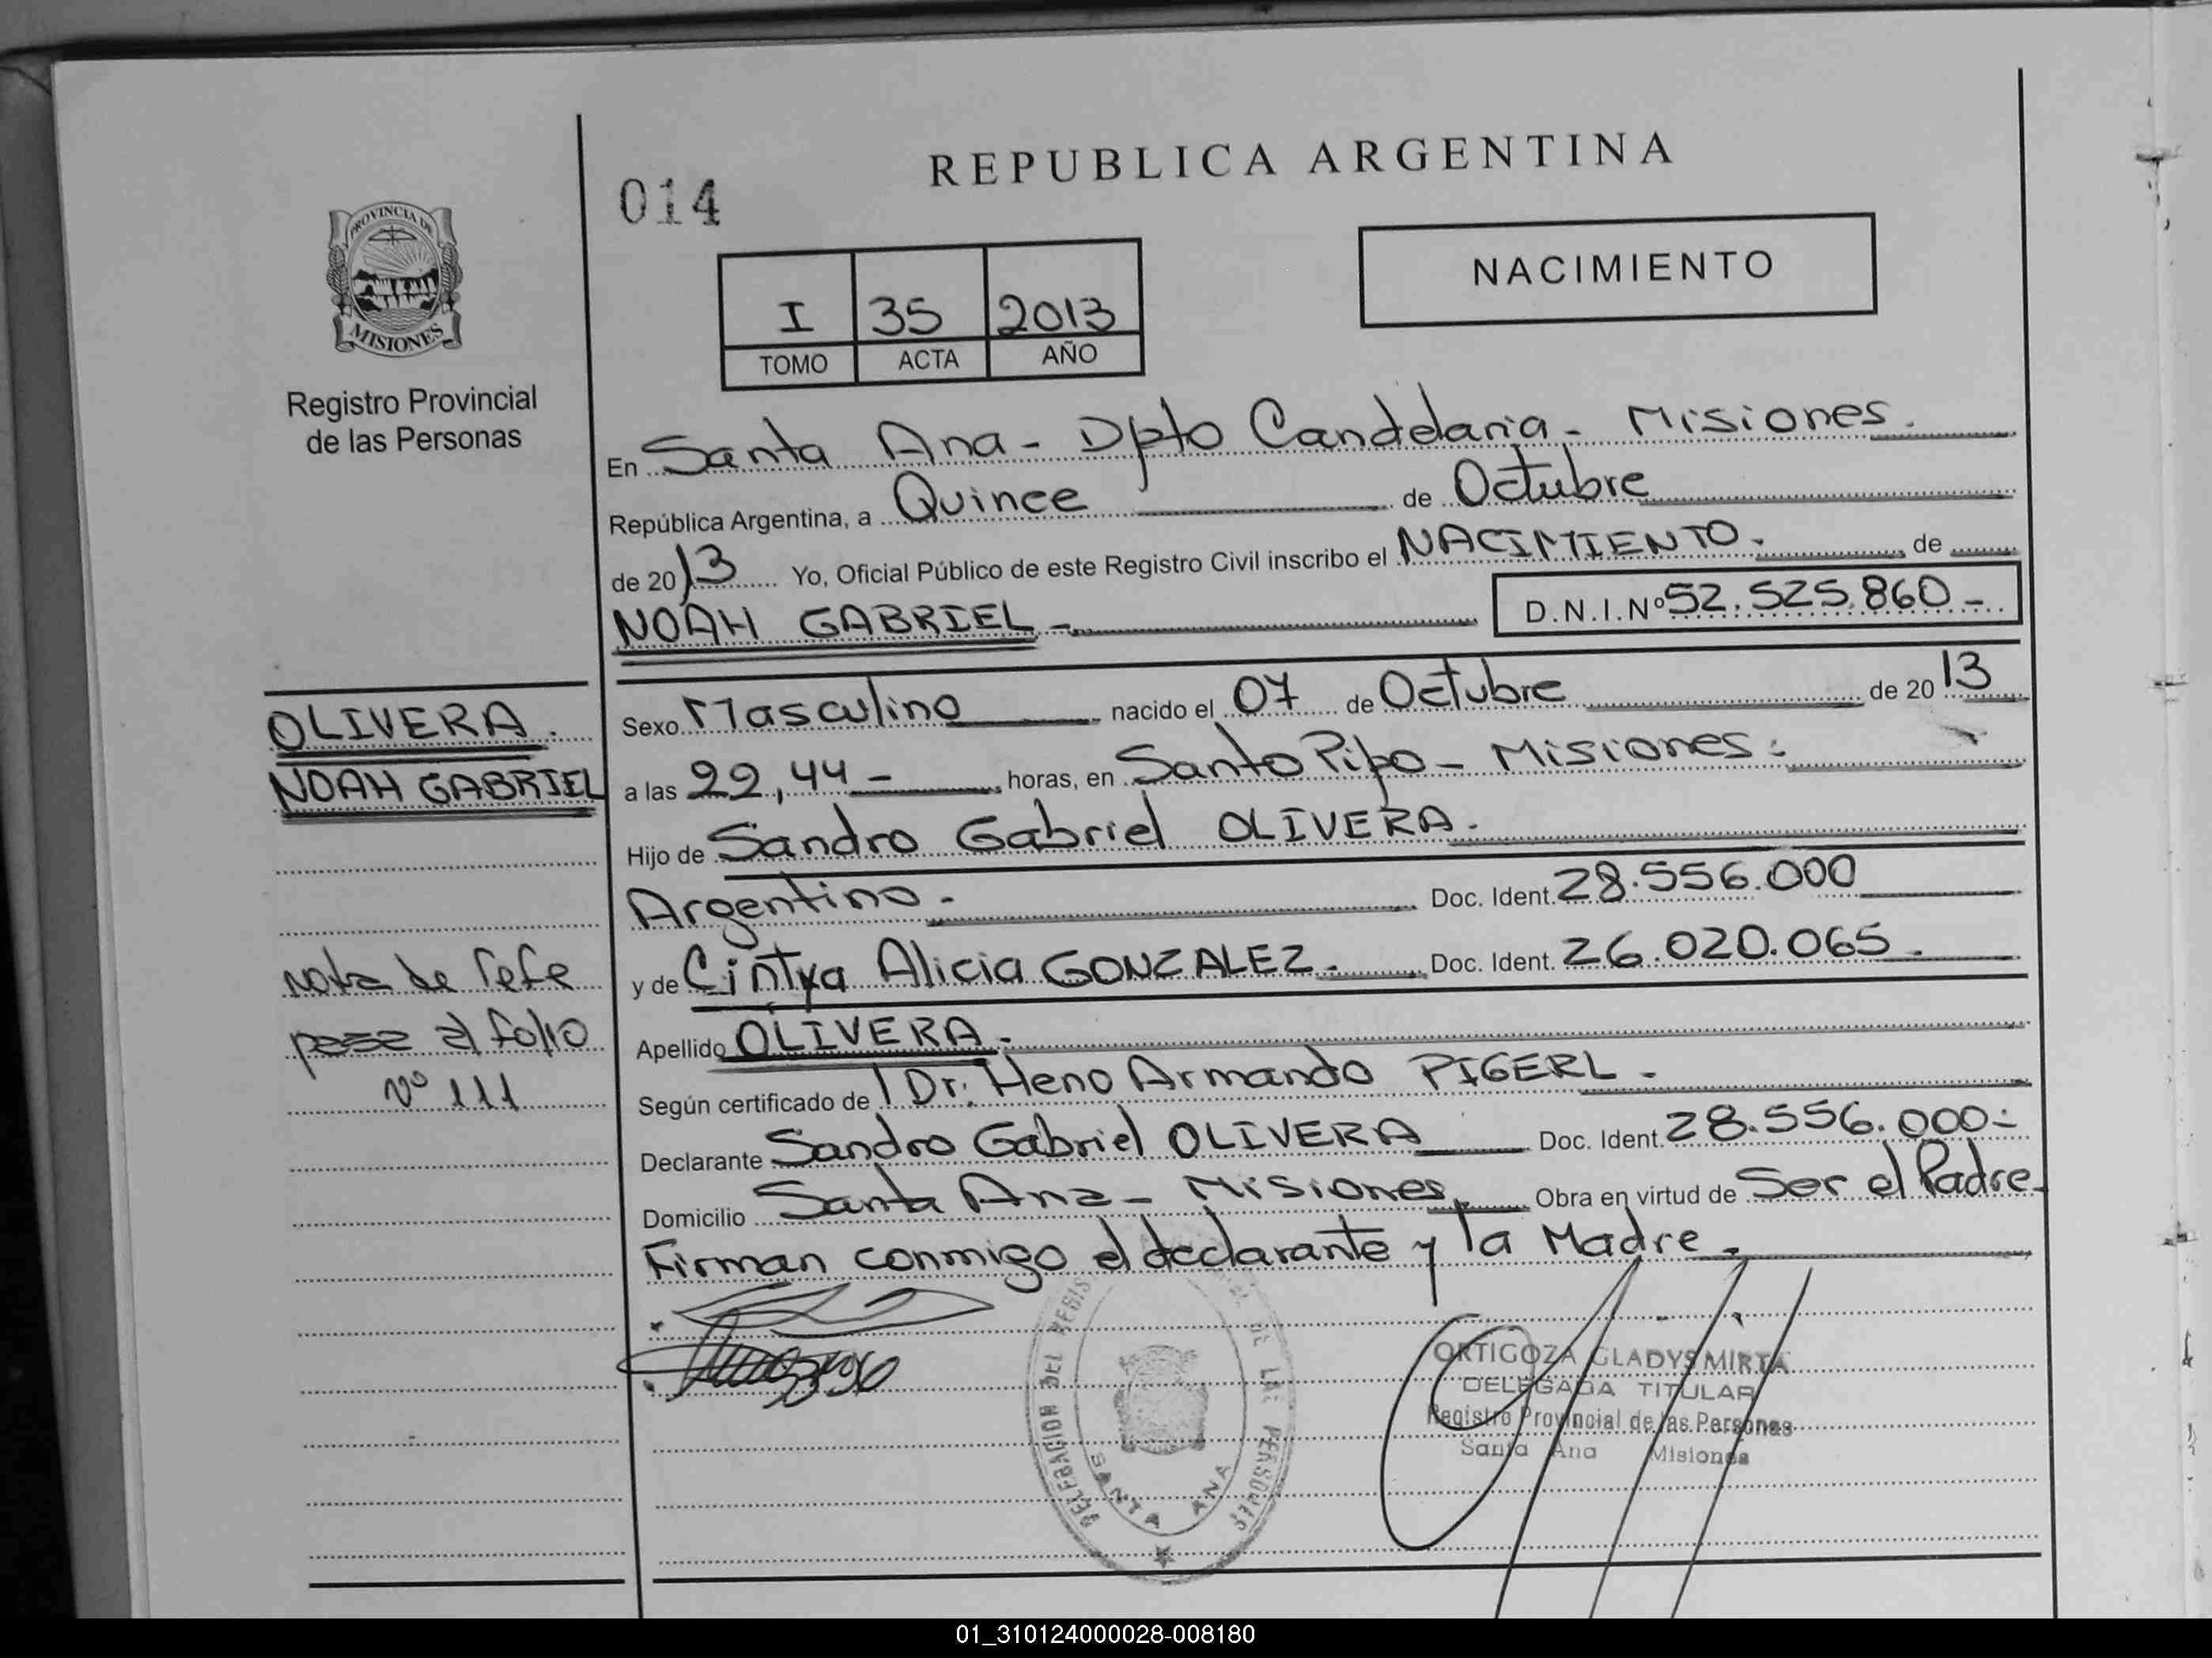 REPUBLICA ARGENTINA
014
NACIMIENTO
PROVINCIA DE
MISIONES
I 35 2013
TOMO ACTA AÑO
Registro Provincial
de las Personas
En Santa Ana - Dpto Candelaria - Misiones.
República Argentina, a Quince de Octubre
de 2013 Yo, Oficial Público de este Registro Civil inscribo el NACIMIENTO. de
NOAH GABRIEL - D.N.I.Nº 52.525.860 -
OLIVERA.
NOAH GABRIEL
Sexo Masculino nacido el 07 de Octubre de 2013
a las 22,44 - horas, en Santo Pipo - Misiones.
Hijo de Sandro Gabriel OLIVERA.
Argentino. Doc. Ident. 28.556.000
y de Cintya Alicia GONZALEZ. Doc. Ident. 26.020.065.
Apellido OLIVERA.
Según certificado de Dr. Heno Armando PIGERL.
Declarante Sandro Gabriel OLIVERA Doc. Ident. 28.556.000-
Domicilio Santa Ana - Misiones. Obra en virtud de Ser el Padre
Firman conmigo el declarante y la Madre.
Nota de Refe
pase al folio
Nº 111
DELEGACION DEL REGIS DE LAS PERSONAS
SANTA ANA
ORTIGOZA GLADYS MIRTA
DELEGADA TITULAR
Registro Provincial de las Personas
Santa Ana Misiones
01_310124000028-008180